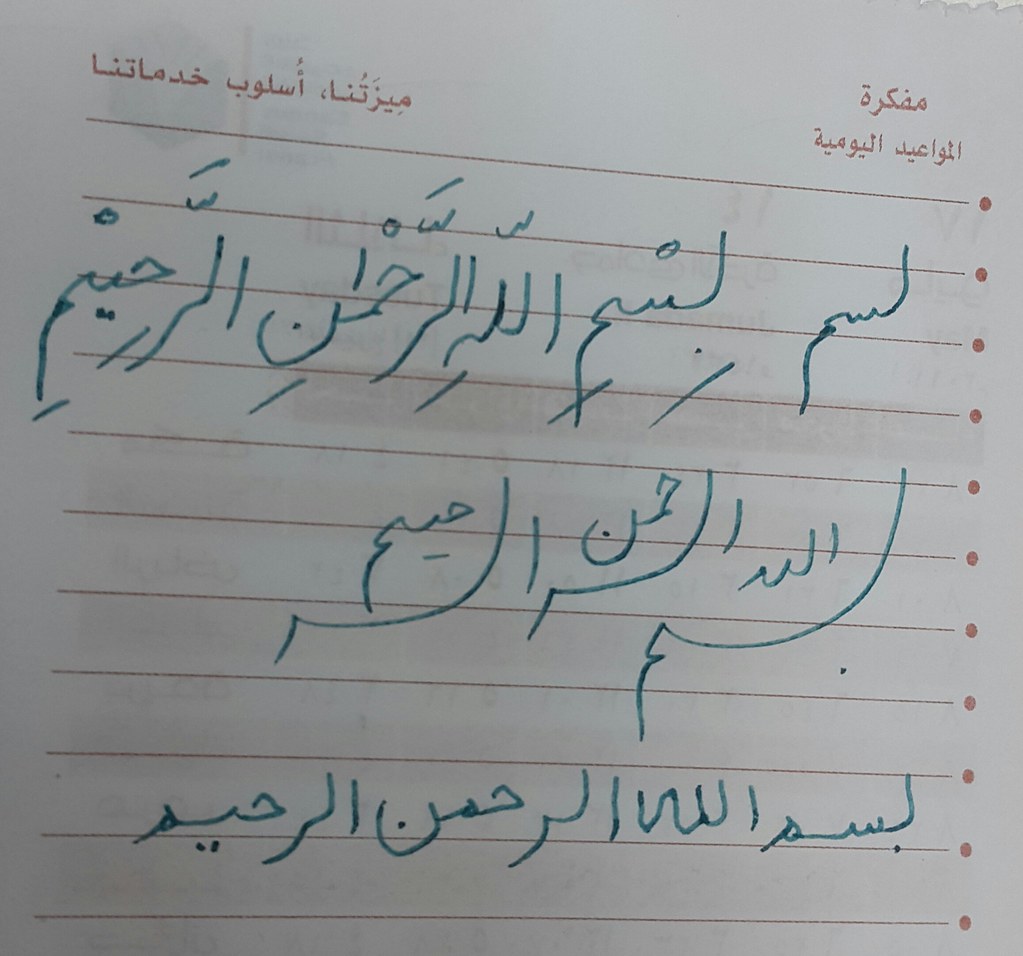 مفكرة
المواعيد اليومية
مِيزَتُنا، أُسلوب خدماتنا
بسم بِسْمِ اللَّهِ الرَّحْمٰنِ الرَّحِيْمِ
بسم الله الرحمن الرحيم
بسم الله الرحمن الرحيم